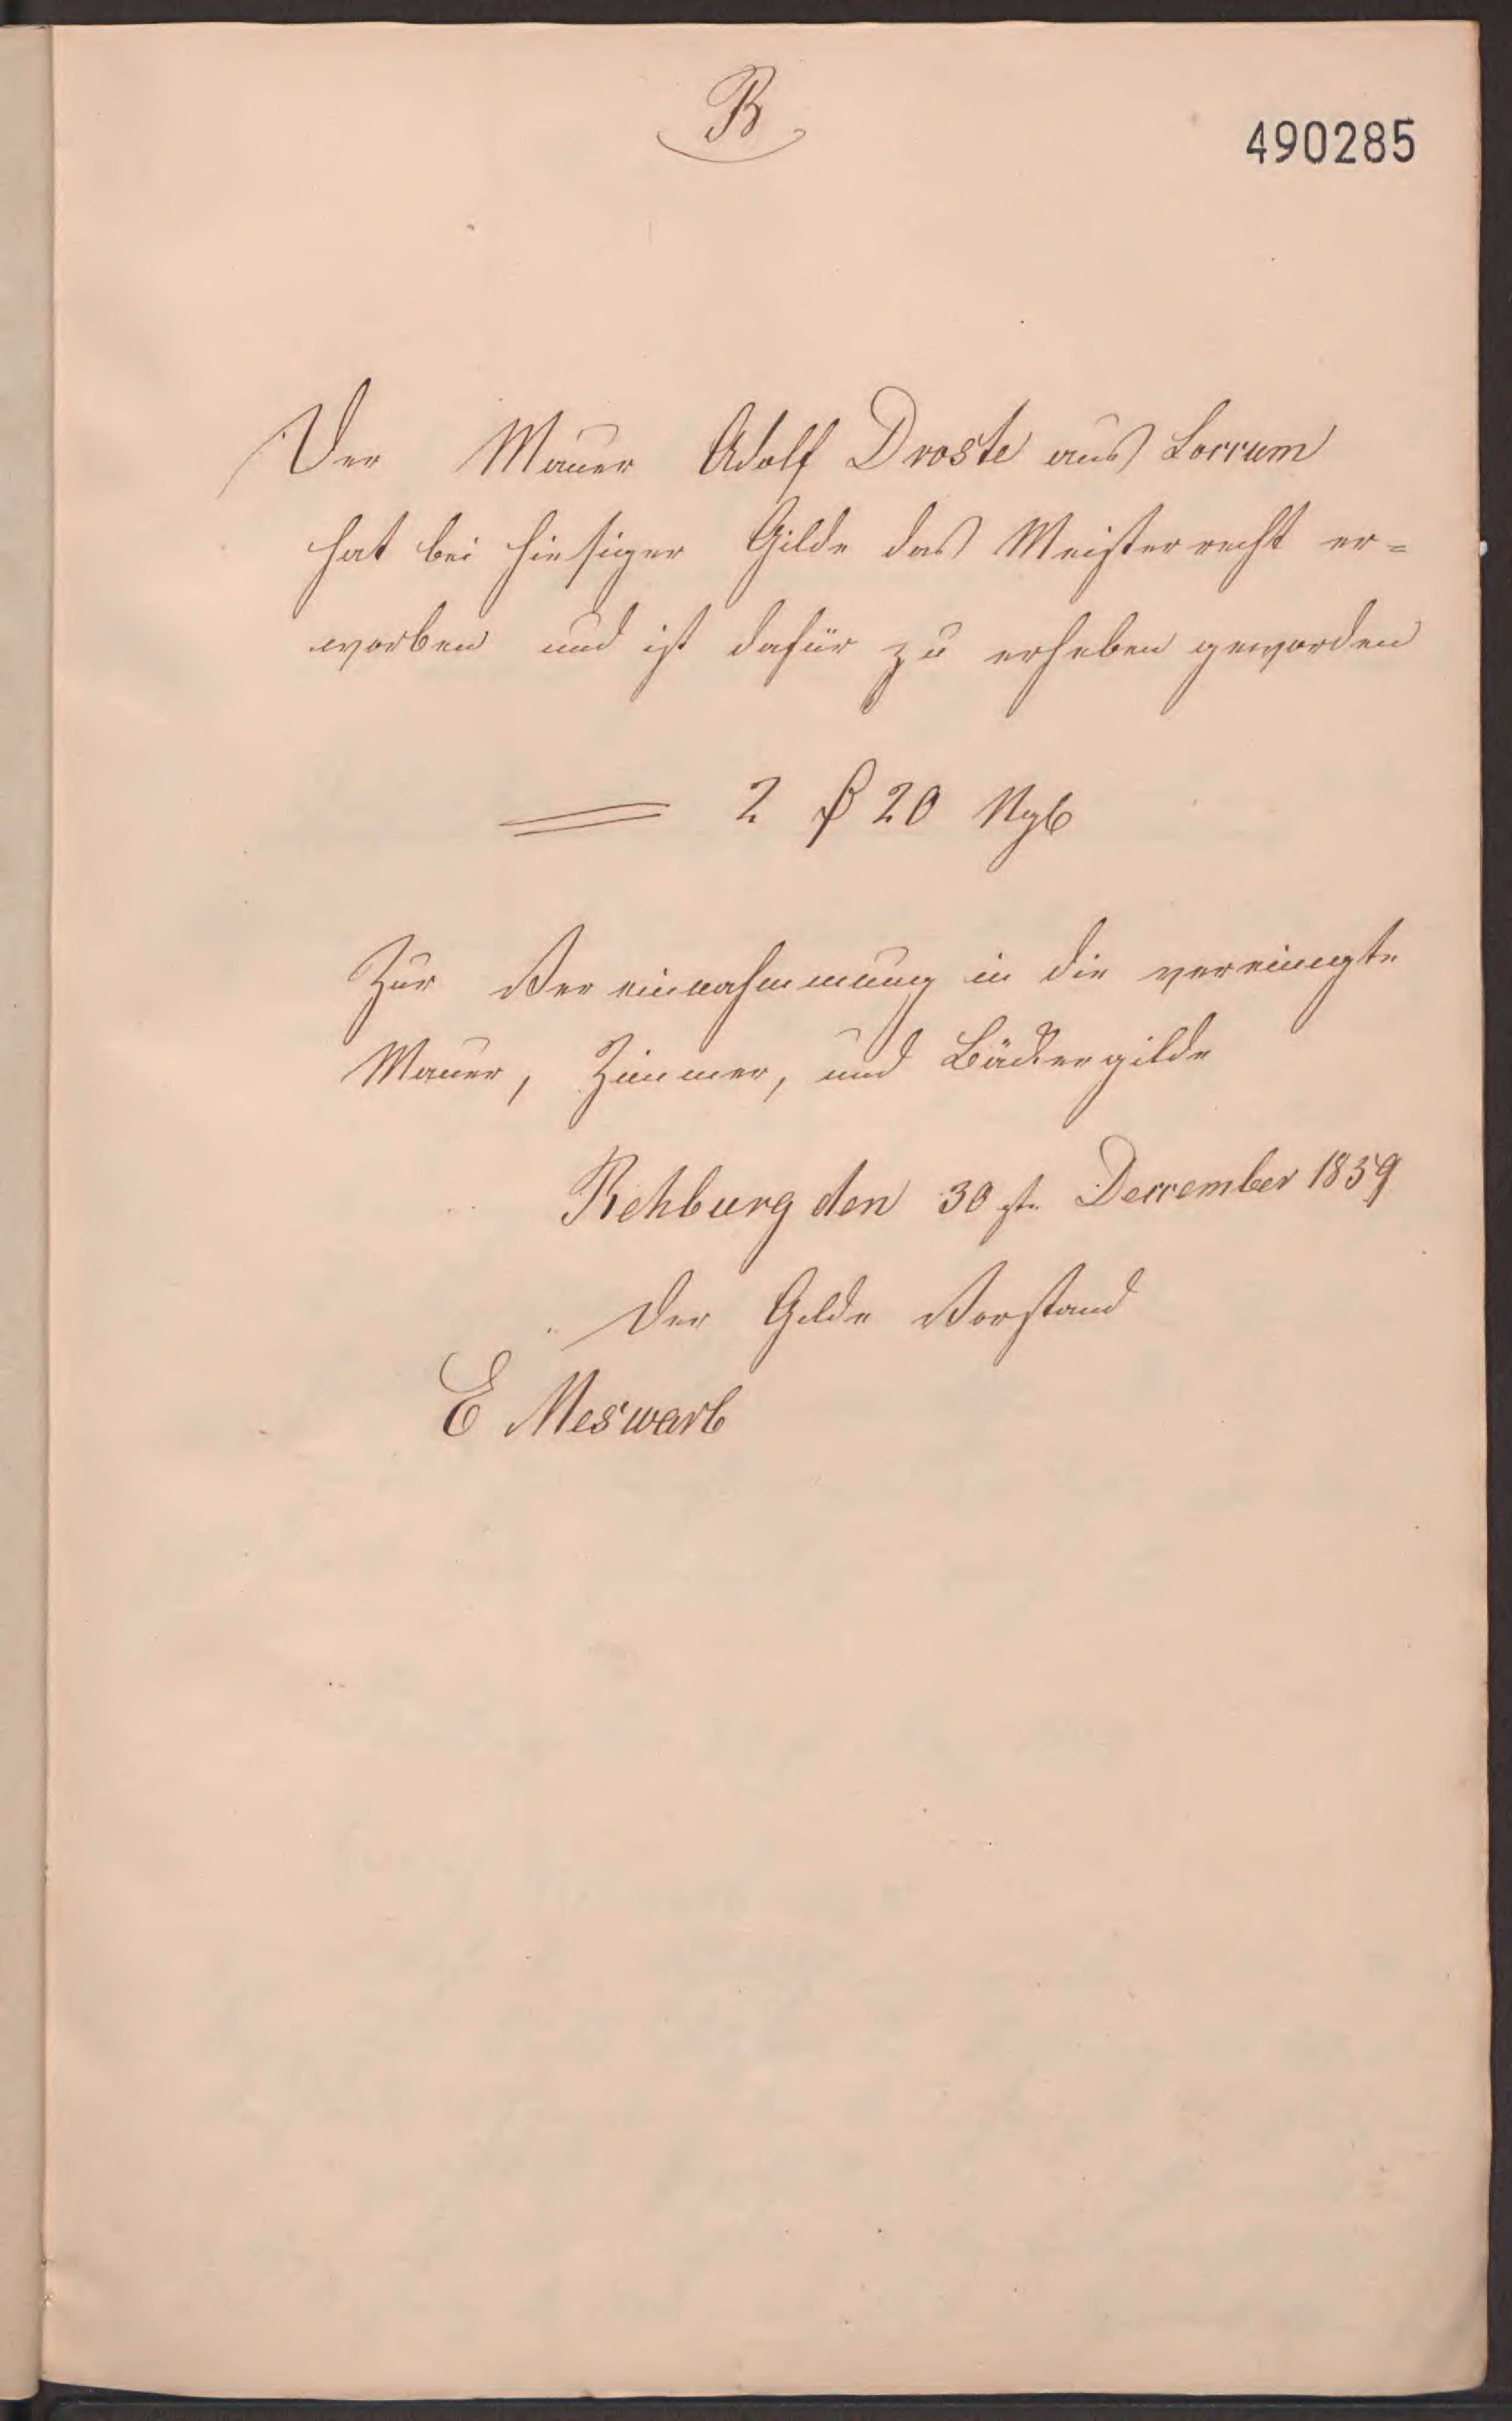 B
490285
Der Maurer Adolf Droste aus Loccum
hat bei hiesiger Gilde das Meisterrecht er=
worben und ist dafür zu erheben geworden
2 20
Zur Vereinnahmung in die vereinigte
Maurer, Zimmer, und Bäckergilde
Rehburg den 30st. December 1859
Der Gilde Vorstand
E Meswarb